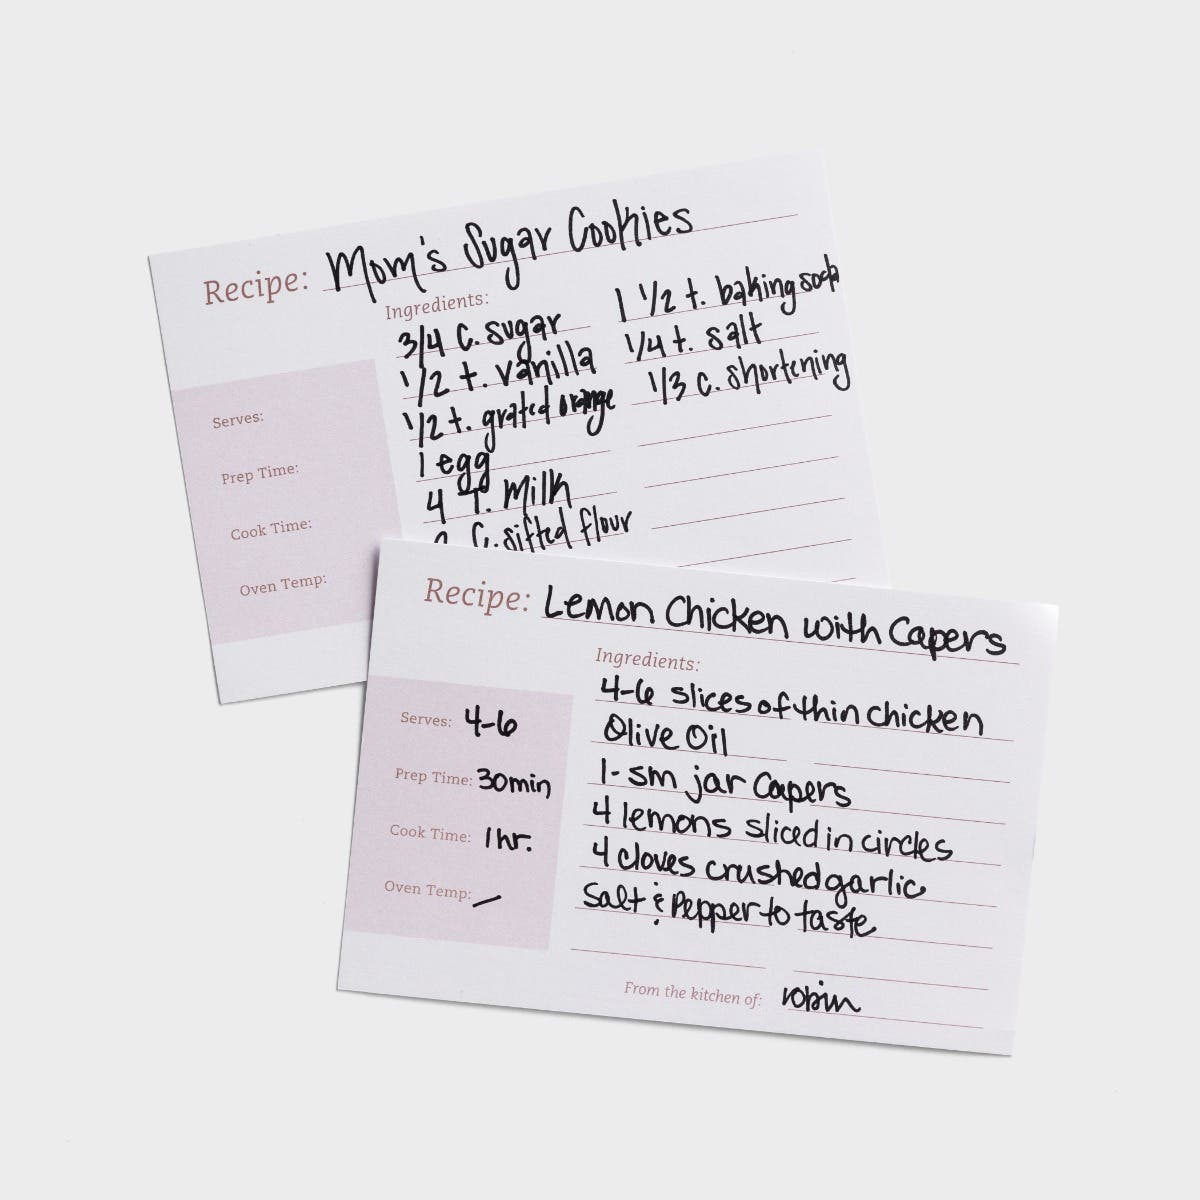 Recipe: Mom's Sugar Cookies
Ingredients:
3/4 C. sugar
1/2 t. vanilla
1/2 t. grated orange
1 egg
4 T. Milk
C. sifted flour
1 1/2 t. baking soda
1/4 t. salt
1/3 c. shortening
Serves:
Prep Time:
Cook Time:
Oven Temp:
Recipe: Lemon Chicken with Capers
Ingredients:
4-6 slices of thin chicken
Olive Oil
1- sm jar Capers
4 lemons sliced in circles
4 cloves crushed garlic
Salt & Pepper to taste
Serves: 4-6
Prep Time: 30min
Cook Time: 1 hr.
Oven Temp: —
From the kitchen of: robin